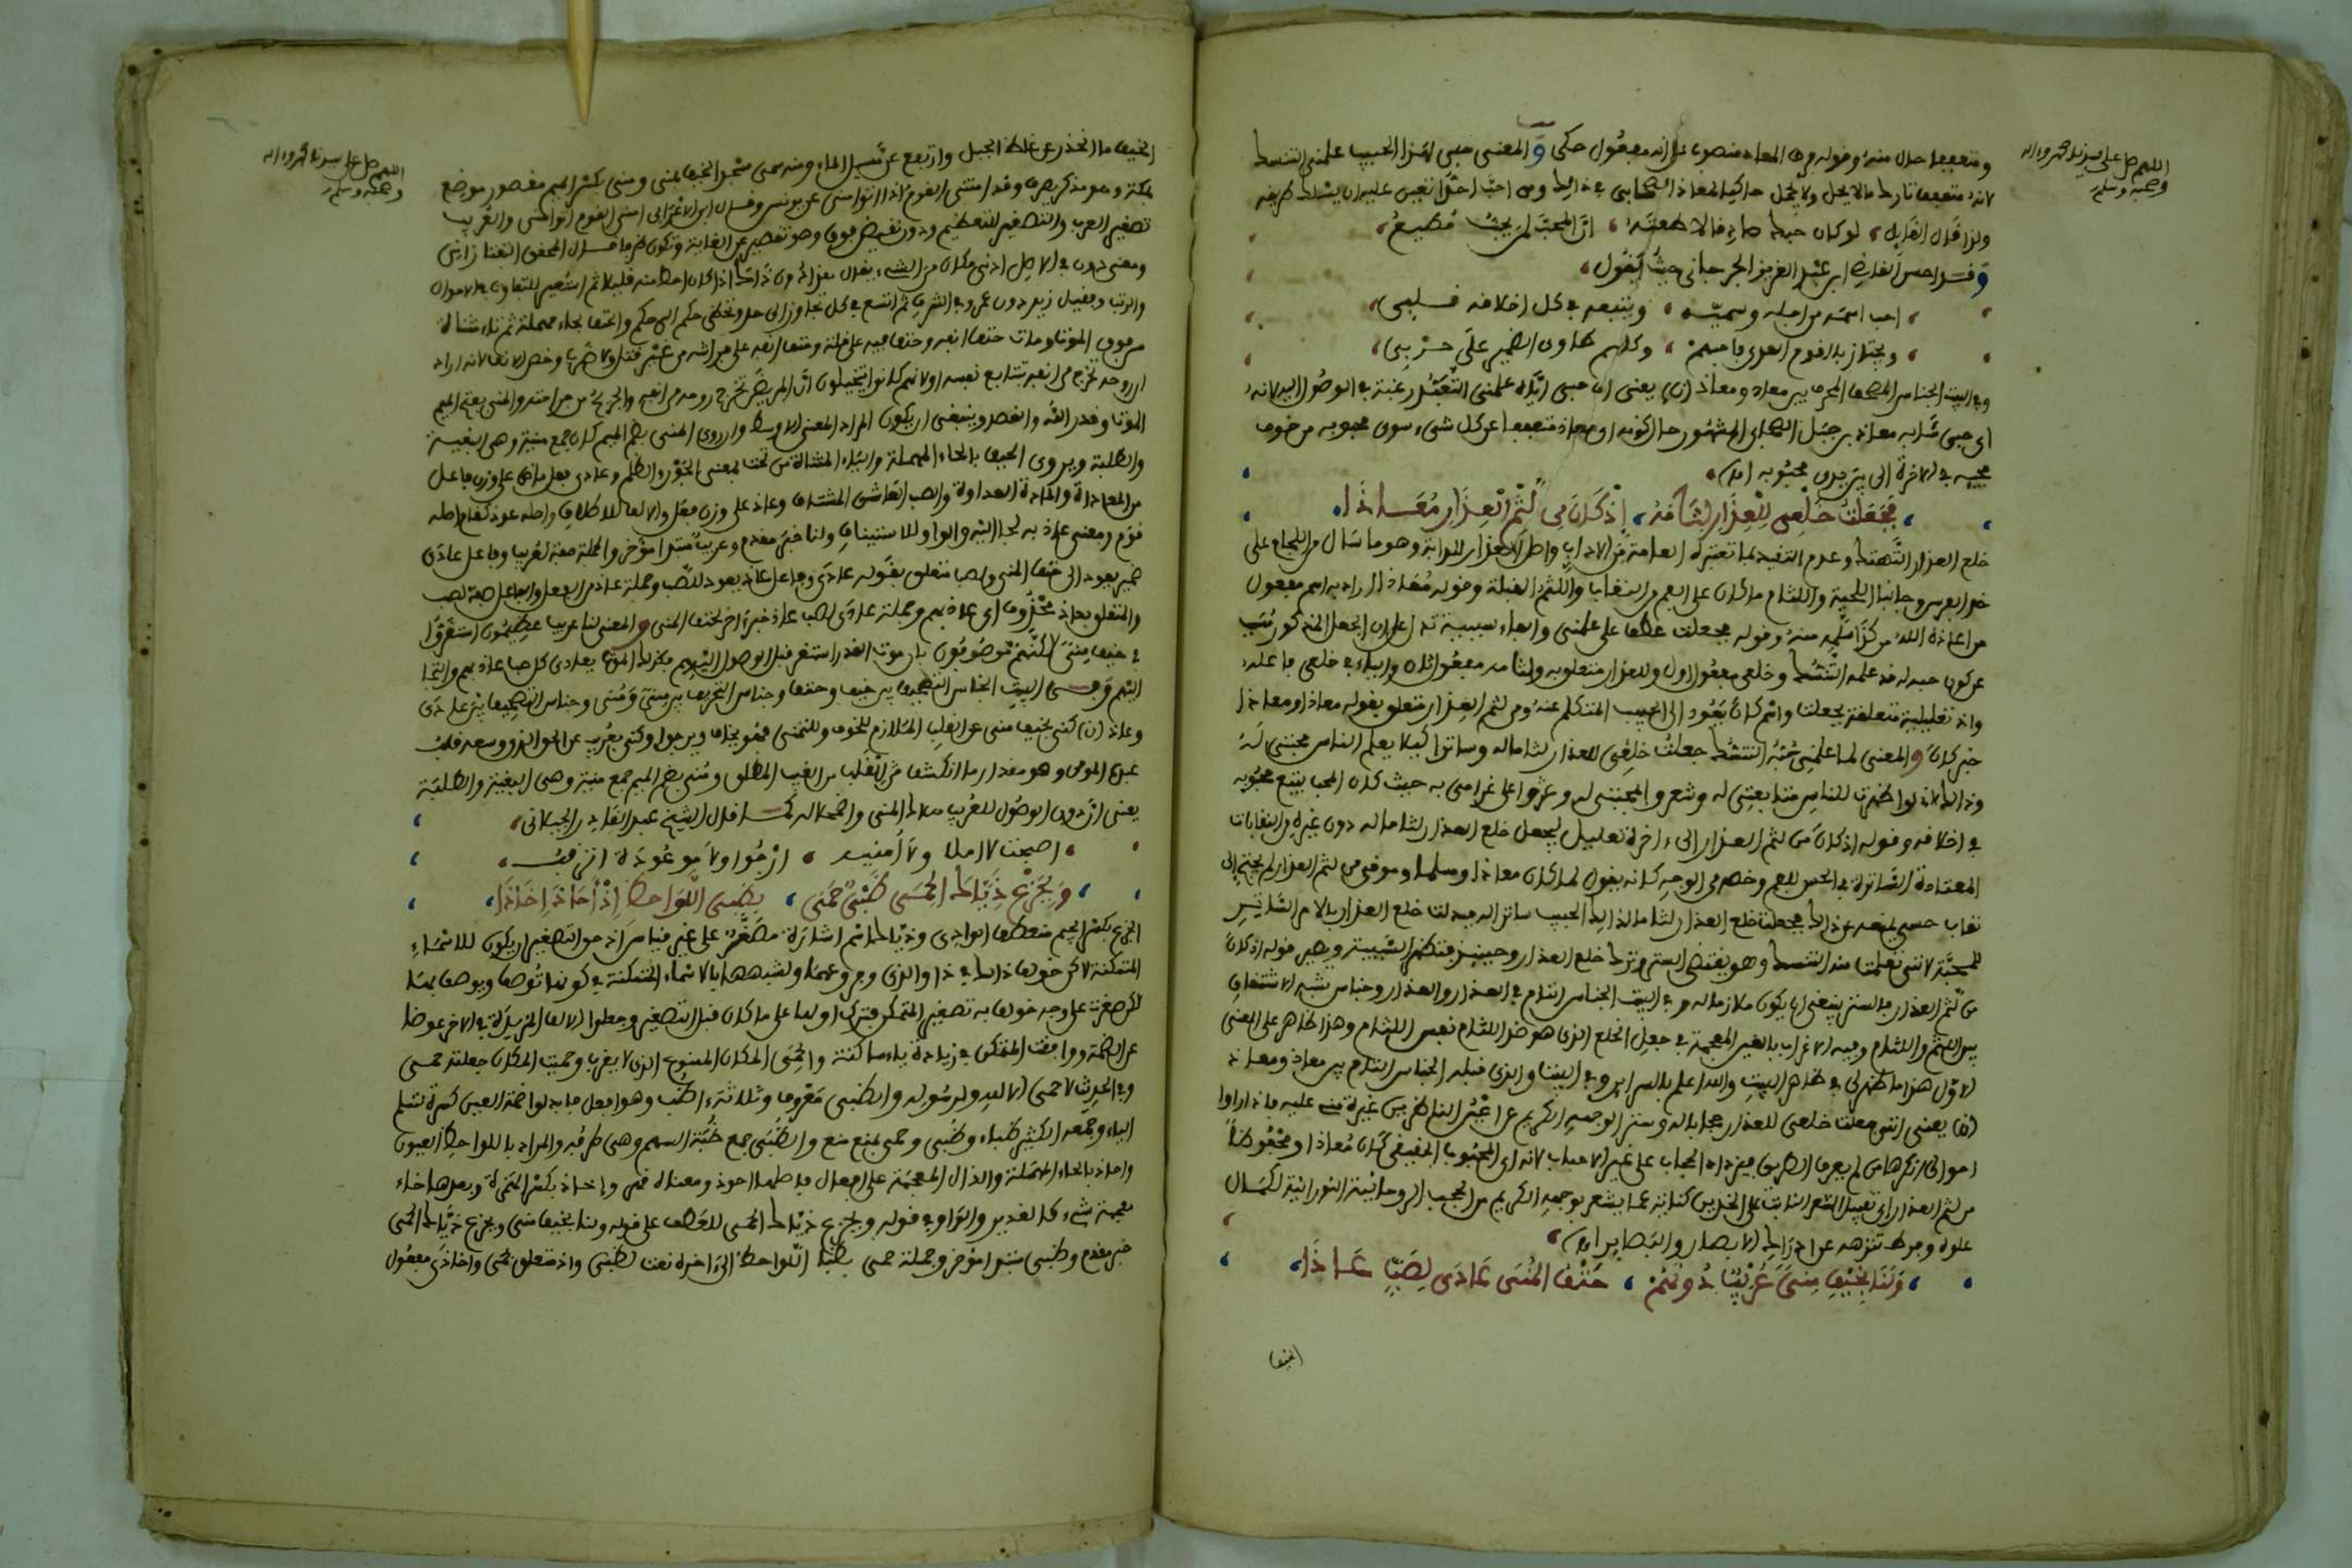 اللهم صل على سيدنا محمد وءاله
وصحبه وسلم
ومتعففا حال منه وقوله في المعاد منصوب على انه مفعول حكى والمعنى حبي لهذا الحبيب علمني التنسك
لانه متعففا تاركا مالا يحل ولا يجمل حاكيا لمعاذ الصحابي في ذالك ومن احب احدا تعين عليه ان يسلك طريقه
ولذا قال القايل لو كان حبك صادقا لاطعته ان المحب لمن يحب مطيع
وقد احسن القاضي ابن عبد العزيز الجرجاني حيث يقول
احب اسمه من اجله وسميه ويتبعه في كل اخلاقه قلبي
ويجتاز بالقوم العدى فاحبهم وكلهم طاوى الضمير على حربي
وفي البيت الجناس المصحف المحرف بين معاد ومعاذ (ن) يعنى ان حبي اياه علمني التعبد رغبة في الوصول اليه لانه
اى حبي شابه معاذ بن جبل الصحابي المشهور حال كونه اى معاذ متعففا عن كل شيء سوى محبوبه من خوف
محبه في الاخرة الى بين يدى محبوبه اهـ
فجعلت خلعي للعذار لثامه اذ كان من لثم العذار معاذا
خلع العذار التهتك وعدم التقيد بما تعتبره العامة من الاداب واصل العذار للدابة وهو ما سال من اللجام على
خد الفرس وجانبا اللحية واللثام ما كان على الفم من النقاب واللثم القبلة وقوله معاذا اراد به اسم مفعول
من اعاذه الله من كذا سلمه منه وقوله فجعلت عطف على علمني والفاء سببية تدل على ان الجعل المذكور مسبب
عن كون حبه له قد علمه التنسك وخلعي مفعول اول وللعذار متعلق به ولثامه مفعول ثان والياء في خلعي فاعله
واذ تعليلية متعلقة بجعلت واسم كان يعود الى الحبيب المتكلم عنه ومن لثم العذار متعلق بقوله معاذا ومعاذا
خبر كان والمعنى لما علمني حبه التنسك جعلت خلعي للعذار لثاما له وساترا كيلا يعلم الناس محبتي له
وذالك لانى لو اظهرت للناس متابعتي له وشعروا بمحبتي له وعثروا على غرامي به حيث كان المحب يتبع محبوبه
في اخلاقه وقوله اذ كان من لثم العذار الى ءاخره تعليل لجعل خلع العذار لثاما له دون غيره من النقابات
المعتادة الساترة في الحس للفم وخص من الوجه كانه يقول لما كان معاذا وسلما وموقى من لثم العذار لم يحتج الى
نقاب حسي يمنعه من ذالك فجعلت خلع العذار لثاما لذالك الحبيب ساترا له فبدلت خلع العذار بالامر الساتر
للمحبة لانني تعلمت منه التنسك وهو يقتضى الستر وترك خلع العذار وحينئذ فتظهر السببية ويصير قوله اذ كان
من لثم العذار فالستر ينبغي ان يكون ملازما له وفي البيت الجناس التام في العذار والعذار وجناس شبه الاشتقاق
بين اللثم واللثام وفيه الاغراب بالغين المعجمة في جعل الخلع الذى هو ضد اللثام نفس اللثام وهذا ظاهر على المعنى
الاول هذا ما ظهر لي في ظاهر البيت والله اعلم بالسراير وفي البيت والذى قبله الجناس التام بين معاذ ومعاذ
(ن) يعنى اننى جعلت خلعي للعذار حجابا له وستر الوجه الكريم عن اعين الناظرين غيرة مني عليه فاذا راوا
احوالى انكرها من لم يعرف الطريق فيزداد الحجاب على غير الاحباب لانه اى المحبوب الحقيقي كان معاذا ومحفوظا
من لثم العذار اى تقبيل الشعر النابت على الخدين كناية عما يشعر بوجهه الكريم من الحجب الروحانية النورانية لكمال
علوه وفرط تنزهه عن ادراك الابصار والبصاير اهـ
ولنا بخيف منى عريب دونهم حتف المنى عادى لصب عاذا
(الخيف)
اللهم صل على سيدنا محمد وءاله
وصحبه وسلم
الخيف ما انحدر عن غلظ الجبل وارتفع عن مسيل الماء ومنه سمى مسجد الخيف بمنى ومنى بكسر الميم مقصور موضع
بمكة وهو مذكر يصرف وقد امتنى القوم اذا اتوا منى عن يونس وقال ابن الاعرابي امنى القوم اتوا منى والعريب
تصغير العرب والتصغير للتعظيم ودون نقيض فوق وهو تقصير عن الغاية وتكون ظرفا قال المحقق التفتازاني
ومعنى دون في الاصل ادنى مكان من الشيء يقال هذا دون ذاك اذا كان احط منه قليلا ثم استعير للتفاوت في الاحوال
والرتب وقيل زيد دون عمرو في الشرف ثم اتسع في كل تجاوز الى حد وتخطى حكم الى حكم والحتف بحاء مهملة ثم تاء مثناة
من فوق الموت ومات حتف انفه وحتف فيه على قلة وحتف انفيه على فراشه من غير قتل ولا ضرب وخص الانف لانه اراد
ان روحه تخرج من انفه بتتابع نفسه او لانهم كانوا يتخيلون ان المريض تخرج روحه من انفه والجريح من جراحته والمنى بفتح الميم
الموت وقدر الله والقصد وينبغي ان يكون المراد المعنى الاوسط وان روى المنى بضم الميم كان جمع منية وهي البغية
والطلبة ويروى الحيف بالحاء المهملة والياء المثناة من تحت بمعنى الجور والظلم وعادى فعل ماض على وزن فاعل
من المعاداة والمادة العداوة والصب العاشق المشتاق وعاذ على وزن فعل والالف للاطلاق واصله عوذ كقام اصله
قوم ومعنى عاذ به لجا اليه والواو للاستيناف ولنا خبر مقدم وعريب مبتدا مؤخر والجملة صفة لعريب وفاعل عادى
ضمير يعود الى حتف المنى ولصب متعلق بقوله عادى وفاعل عاذ يعود للصب وجملة عاذ من الفعل والفاعل صفة لصب
والمتعلق بعاذ محذوف اى عاذ بهم وجملة عادى لصب عاذ خبر ءاخر لحتف المنى والمعنى لنا عريب عظيمون استقروا
في خيف منى لكنهم موصوفون بان موت القدر استقر قبل الوصول اليهم فكذلك الموت يعادى كل صب عاذ بهم والتجا
اليهم وفي البيت الجناس التصحيف بين خيف وحتف وجناس التحريف بين منى ومنى وجناس التصحيف بين عادى
وعاذ (ن) كنى بخيف منى عن القلب الملازم للخوف وللتمنى فهو يخاف ويرجو وكنى بعريب عن الحق الذى وسعه قلب
عبده المومن وهو مقدار ما انكشف من الغيب المطلق ومنى بضم الميم جمع منية وهي البغية والطلبة
يعنى ان دون الوصول للعريب هلاك المنى واضمحلاله كما قال الشيخ عبد القادر الجيلاني
اصبحت لا املا ولا امنية ارجوا ولا موعودة اترقب
وبجزع ذياك الحمى ظبي حمى بظبي اللواحظ اذ احاذ اخاذا
الجزع بكسر الجيم منعطف الوادى وذياك اسم اشارة مصغر على غير قياس اذ حق التصغير ان يكون للاسماء
المتمكنة لاكن خولف ذالك في ذا والذى وفروعهما لشبههما بالاسماء المتمكنة في كونها توصف ويوصف بها
لاكن صغرت على وجه خولف به تصغير المتمكن فترك اولها على ما كان قبل التصغير وجعلوا الالف المزيدة في الاخر عوضا
عن الضمة ووافقت المتمكن في زيادة ياء ساكنة والحمى المكان الممنوع الذى لا يقرب وحميت المكان جعلته حمى
وفي الحديث لا حمى الا لله ولرسوله والظبي معروف وثلاثة اظب وهو افعل فابدلوا ضمة العين كسرة لتسلم
الياء وجمعه الكثير ظباء وظبي وحمى بمنع منع والظبى جمع ظبة السهم وهي طرفه والمراد باللواحظ العيون
واحاذ بالحاء المهملة والذال المعجمة على افعال فاصلها احوذ ومعناه قهر واخاذ بكسر الهمزة وبعدها خاء
معجمة شيء كالغدير والواو في قوله وبجزع ذياك الحمى للعطف على قوله ولنا بخيف منى وبجزع ذياك الحمى
خبر مقدم وظبي مبتدا مؤخر وجملة حمى بظبا اللواحظ الى ءاخره نعت لظبي واذ متعلق بحمى واخاذى مفعول